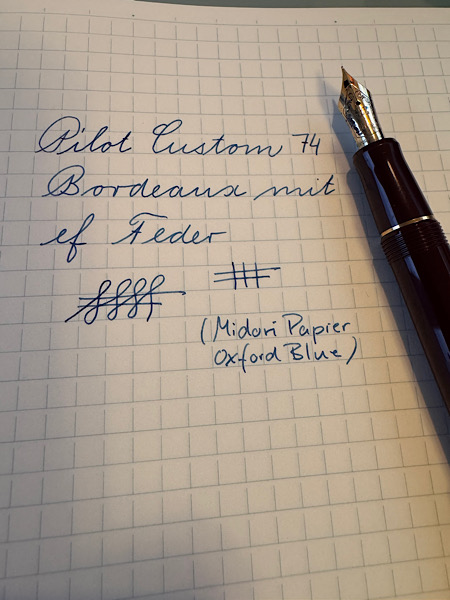 Pilot Custom 74
Bordeaux mit
ef Feder
(Midori Papier
Oxford Blue)